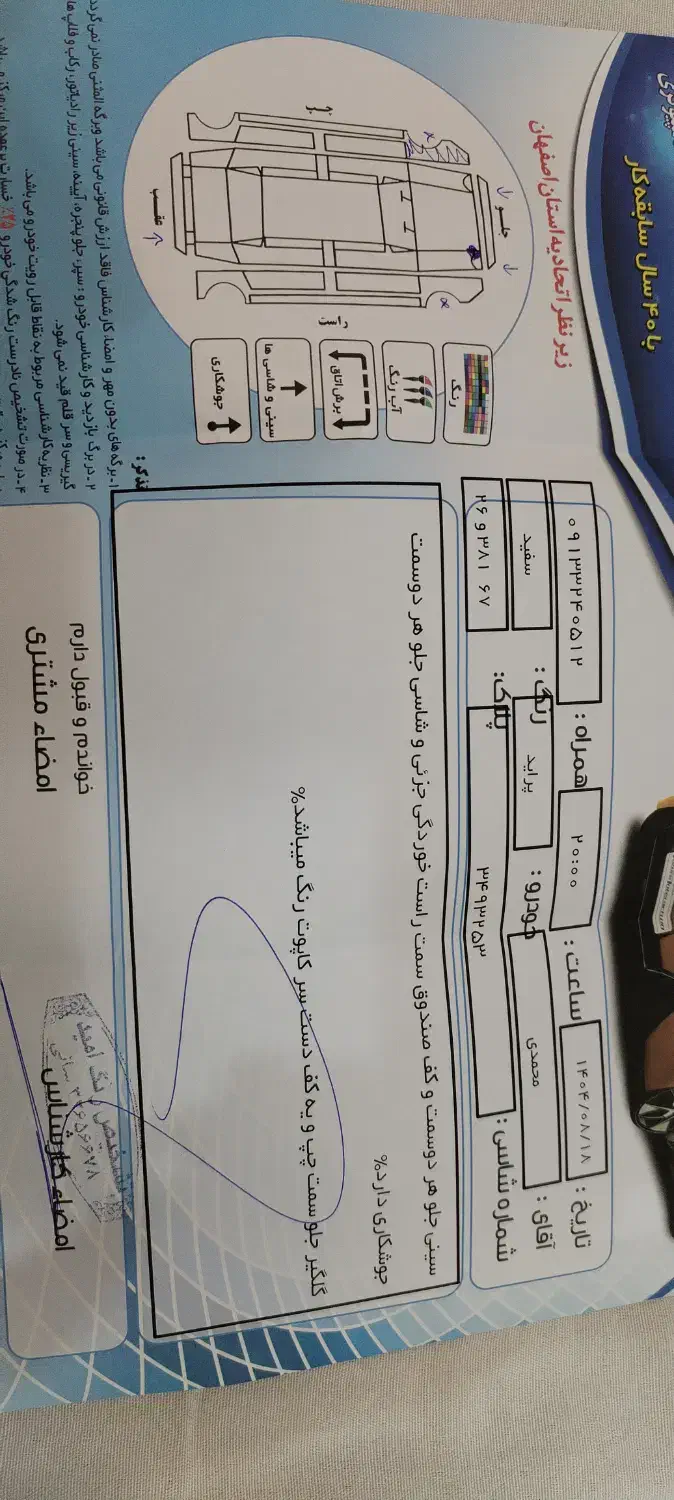 با ۴۰ سال سابقه کار
زیر نظر اتحادیه استان اصفهان
تاریخ : ۱۴۰۴/۰۸/۱۸
ساعت : ۲۰:۰۰
همراه : ۰۹۱۳۳۲۴۰۵۱۲
آقای : محمدی
خودرو : پراید
رنگ : سفید
شماره شاسی : ۳۴۹۳۲۵۳
پلاک : ۲۶ و ۳۸۱ ۶۷
جلو
عقب
راست
رنگ
آب رنگ
برش اتاق
سینی و شاسی ها
جوشکاری
سینی جلو هر دوسمت و کف صندوق سمت راست خوردگی جزئی و شاسی جلو هر دوسمت
جوشکاری دارد%
گلگیر جلو سمت چپ و یه کف دست سر کاپوت رنگ میباشد%
تذکر :
۱- برگه های بدون مهر و امضاء کارشناس فاقد ارزش قانونی می باشد وبرگه المثنی صادر نمی گردد
۲- در برگ بازدید و کارشناسی خودرو : سپر، جلو پنجره، آیینه، سینی زیر رادیاتور، رکاب و قلاب ها
گیربسی و سر قلم قید نمی شود.
۳- نظریه کارشناسی مربوط به نقاط قابل رویت خودرو می باشد.
۴- در صورت تشخیص نادرست رنگ شدگی خودرو
خواندم و قبول دارم
امضاء مشتری
امضاء کارشناس
تشخیص رنگ امید